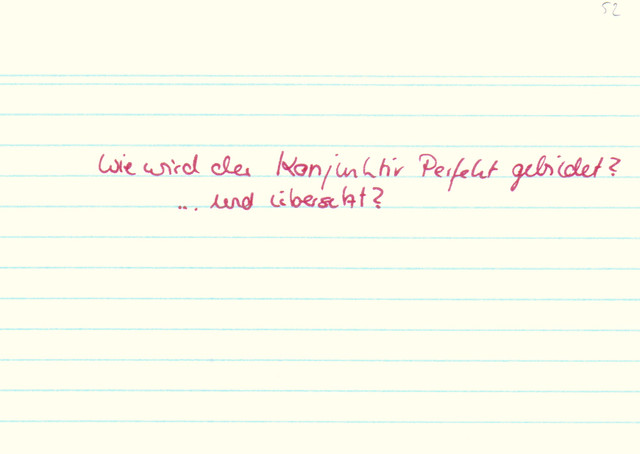 52
Wie wird der Konjunktiv Perfekt gebildet?
... und übersetzt?